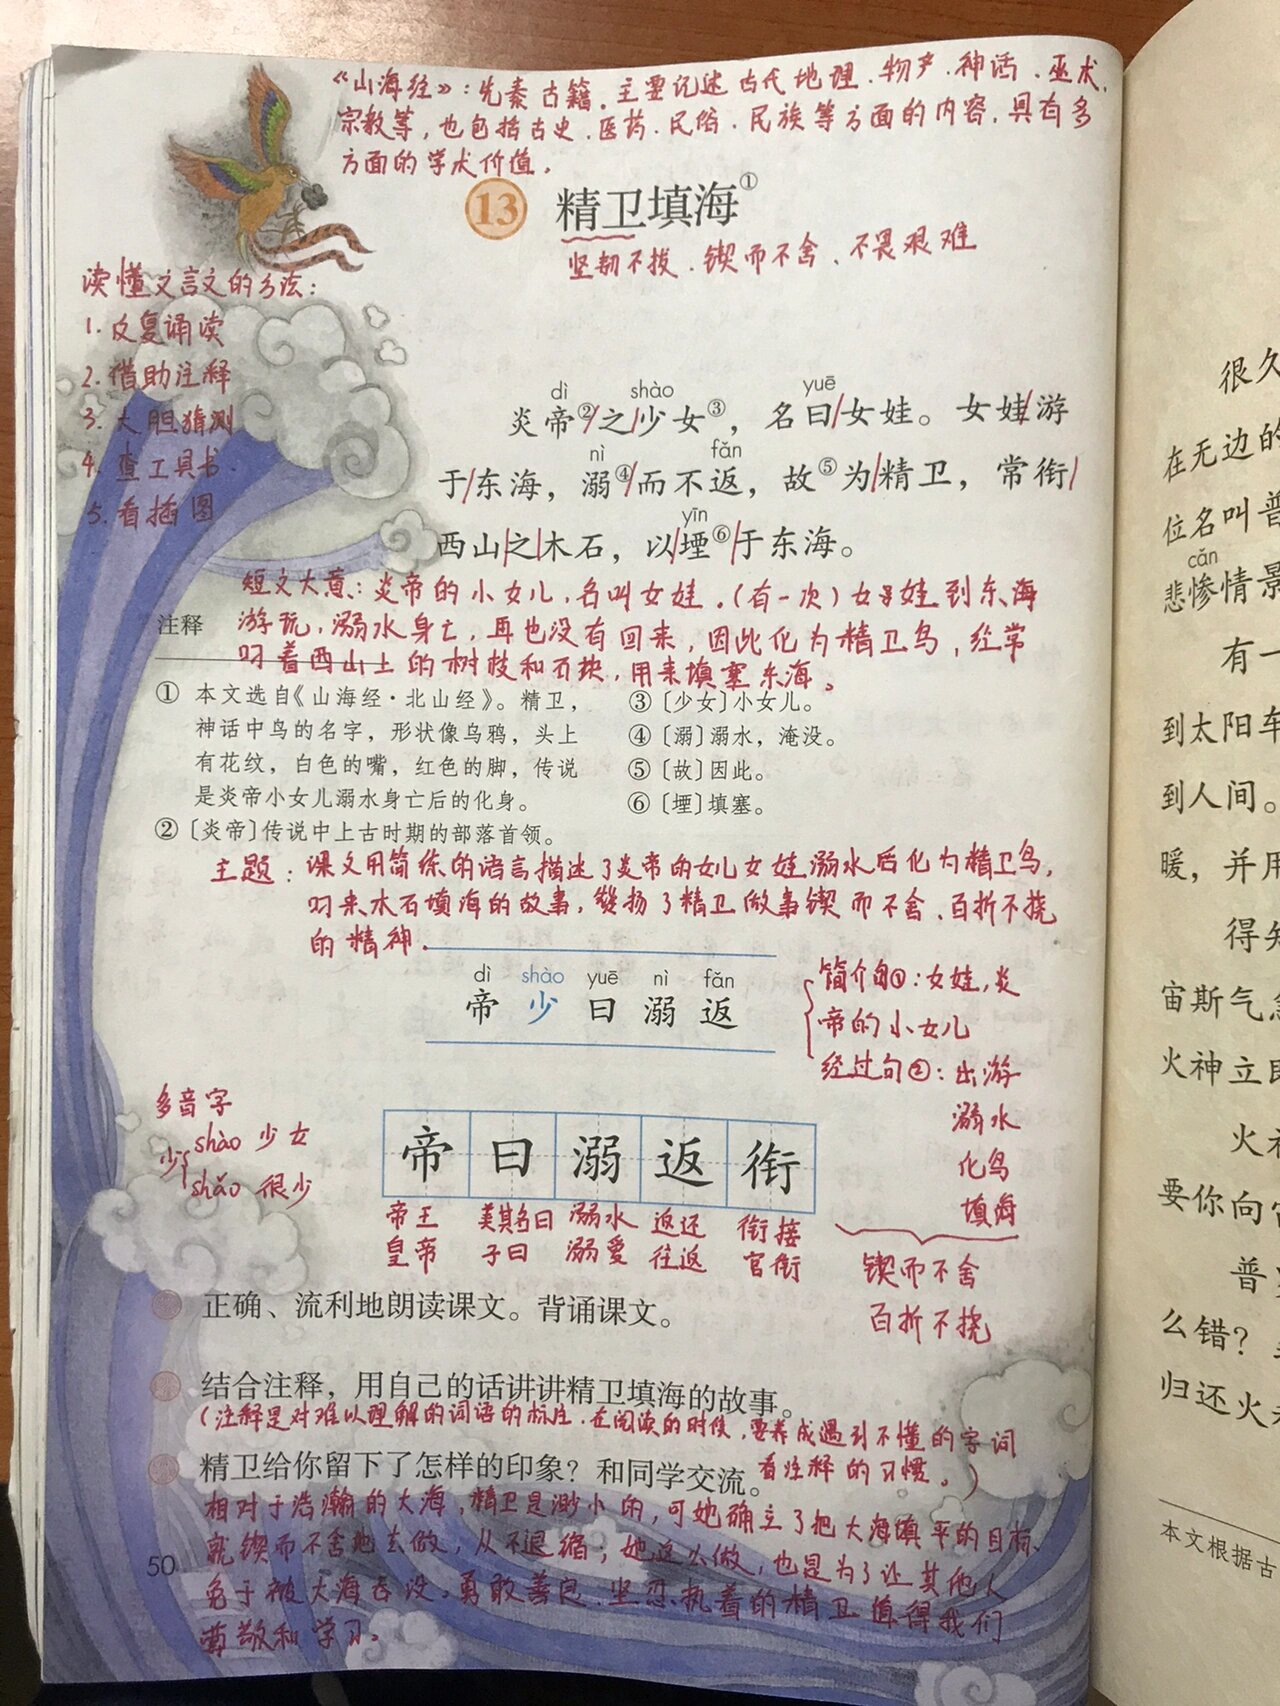 《山海经》：先秦古籍。主要记述古代地理、物产、神话、巫术、
宗教等，也包括古史、医药、民俗、民族等方面的内容，具有多
方面的学术价值。
13 精卫填海①
坚韧不拔、锲而不舍、不畏艰难
读懂文言文的方法：
1.反复诵读
2.借助注释
3.大胆猜测
4.查工具书
5.看插图
dì shào yuē
炎帝②/之/少女③，名曰/女娃。女娃/游
nì fǎn
于/东海，溺④/而不返，故⑤为/精卫，常衔/
yīn
西山/之/木石，以/堙⑥/于东海。
短文大意：炎帝的小女儿，名叫女娃。（有一次）女娃到东海
游玩，溺水身亡，再也没有回来，因此化为精卫鸟，经常
叼着西山上的树枝和石块，用来填塞东海。
注释
① 本文选自《山海经·北山经》。精卫，
神话中鸟的名字，形状像乌鸦，头上
有花纹，白色的嘴，红色的脚，传说
是炎帝小女儿溺水身亡后的化身。
②〔炎帝〕传说中上古时期的部落首领。
③〔少女〕小女儿。
④〔溺〕溺水，淹没。
⑤〔故〕因此。
⑥〔堙〕填塞。
主题：课文用简练的语言描述了炎帝的女儿女娃溺水后化为精卫鸟，
叼来木石填海的故事，赞扬了精卫做事锲而不舍、百折不挠
的精神。
dì shào yuē nì fǎn
帝 少 曰 溺 返
简介句①：女娃，炎
帝的小女儿
经过句②：出游
溺水
化鸟
填海
锲而不舍
百折不挠
多音字
少 shào 少女
shǎo 很少
帝 曰 溺 返 衔
帝王 美其名曰 溺水 返还 衔接
皇帝 子曰 溺爱 往返 官衔
正确、流利地朗读课文。背诵课文。
结合注释，用自己的话讲讲精卫填海的故事。
（注释是对难以理解的词语的标注，在阅读的时候，要养成遇到不懂的字词
看注释的习惯。）
精卫给你留下了怎样的印象？和同学交流。
相对于浩瀚的大海，精卫是渺小的，可她确立了把大海填平的目标、
就锲而不舍地去做，从不退缩；她这么做，也是为了让其他人
免于被大海吞没。勇敢善良、坚忍执着的精卫值得我们
尊敬和学习。
50
很久
在无边的
位名叫普
cǎn
悲惨情景
有一
到太阳车
到人间。
暖，并用
得知
宙斯气急
火神立即
火神
要你向宙
普
么错？
归还火
本文根据古